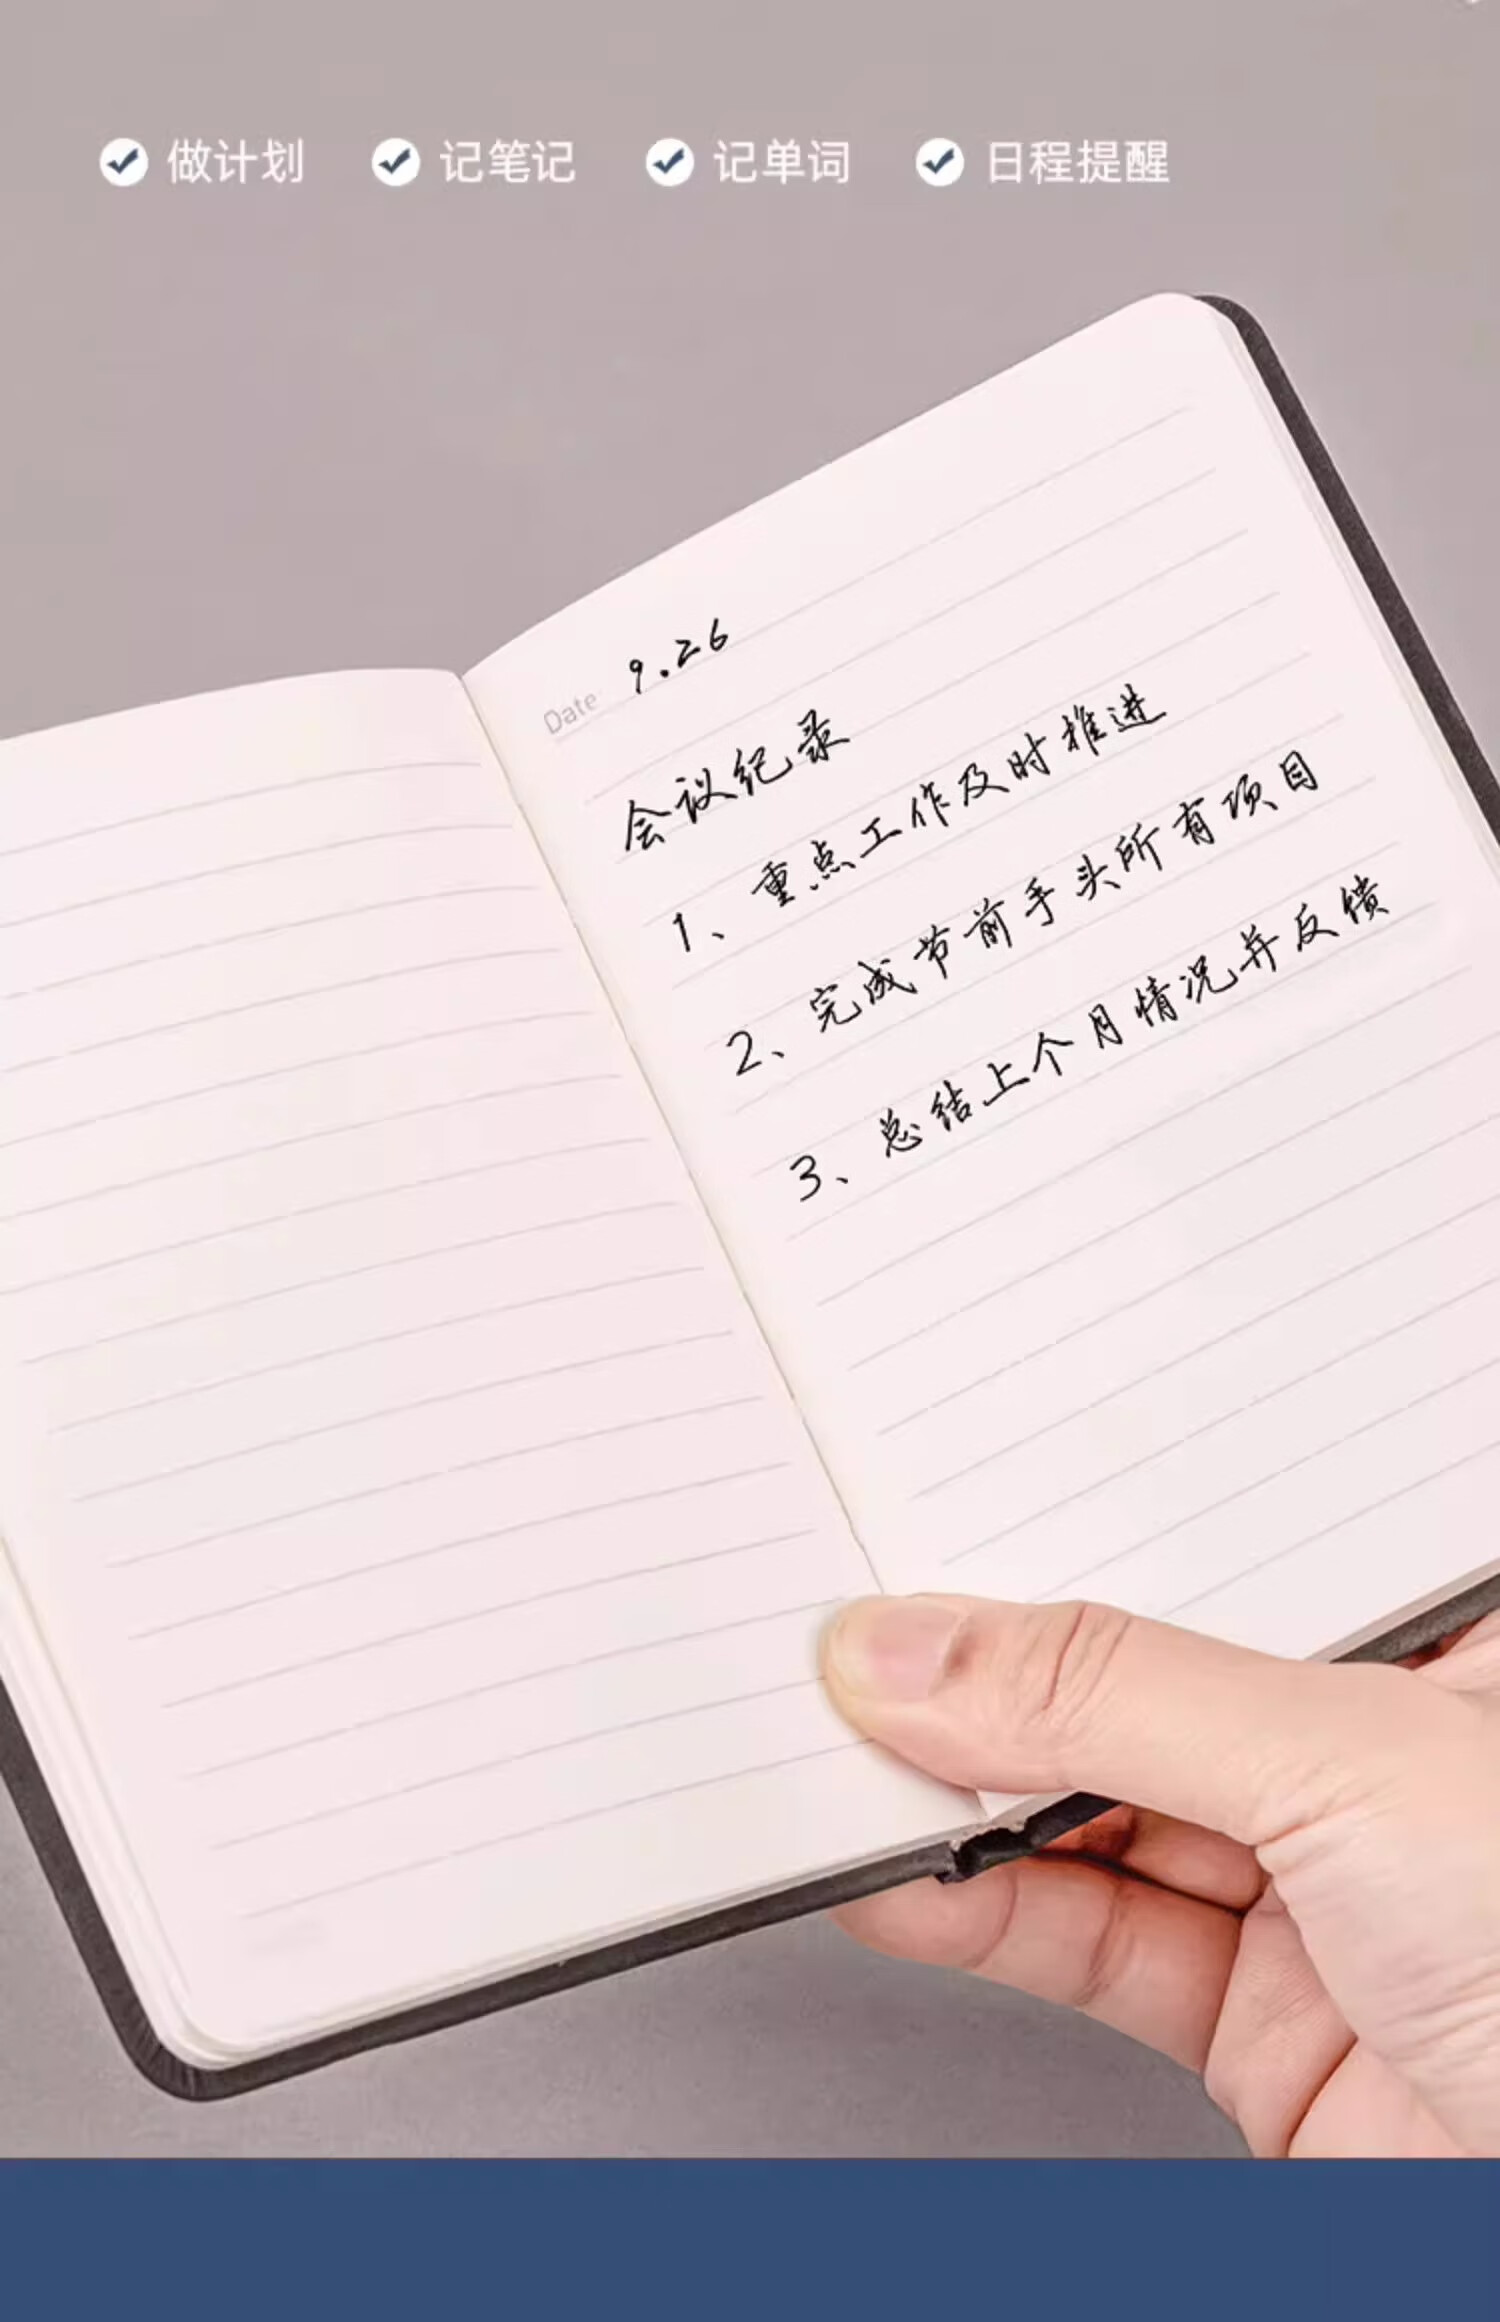 做计划 记笔记 记单词 日程提醒
Date 9.26
会议纪录
1、重点工作及时推进
2、完成节前手头所有项目
3、总结上个月情况并反馈